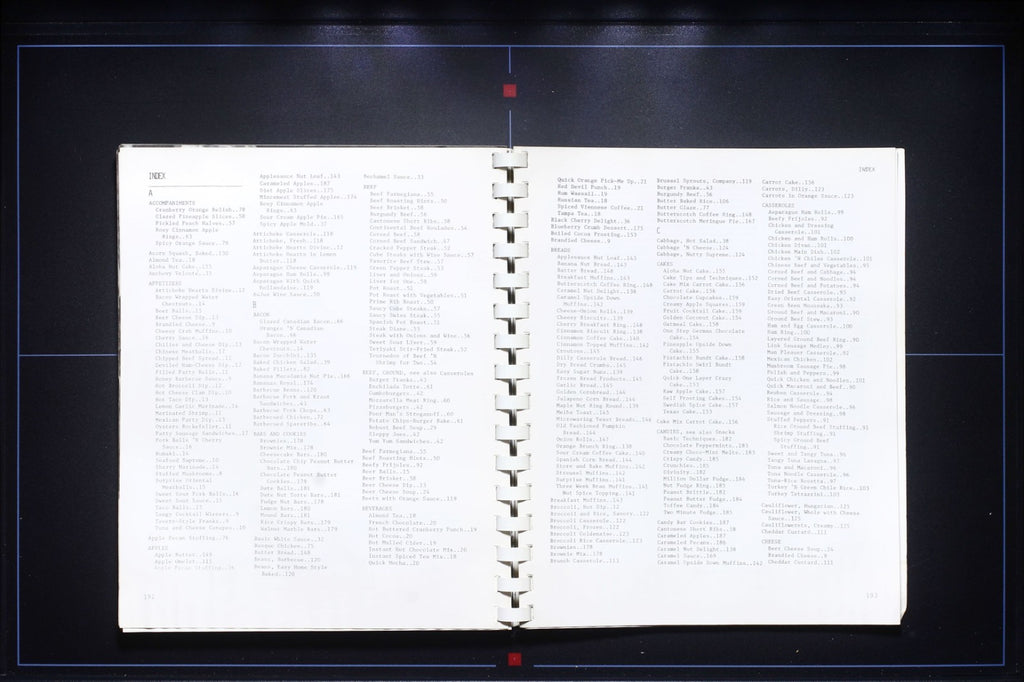 INDEX
A
ACCOMPANIMENTS
Cranberry Orange Relish..78
Glazed Pineapple Slices..58
Pickled Peach Halves..57
Rosy Cinnamon Apple
Rings..63
Spicy Orange Sauce..79
Acorn Squash, Baked..130
Almond Tea..18
Aloha Nut Cake..155
APPETIZERS
Artichoke Hearts Divine..12
Bacon Wrapped Water
Chestnuts..14
Beer Balls..15
Beer Cheese Dip..13
Brandied Cheese..9
Cherry Sauce..39
Chinese Meatballs..17
Filled Party Rolls..12
Hot Broccoli Dip..12
Hot Cheese Clam Dip..10
Hot Taco Dip..13
Marinated Shrimp..11
Mexican Party Dip..13
Pork Balls 'N Cherry
Sauce..16
Rumaki..14
Sherry Marinade..14
Stuffed Mushrooms..8
Surprise Oriental
Meatballs..15
Sweet Sour Pork Balls..16
Sweet Sour Sauce..15
Taco Balls..17
Tangy Cocktail Wieners..9
Apple Pecan Stuffing..76
APPLES
Apple Butter..165
192
Applesauce Nut Loaf..143
Carameled Apples..187
Diet Apple Slices..175
Mincemeat Stuffed Apples..174
Rosy Cinnamon Apple
Rings..63
Sour Cream Apple Pie..165
Spicy Apple Mold..32
Artichoke Casserole..118
Artichoke, Fresh..118
Artichoke Hearts Divine..12
Artichoke Hearts in Lemon
Butter..118
Asparagus Cheese Casserole..119
Asparagus Ham Rolls..99
Asparagus With Quick
Hollandaise..119
B
BACON
Glazed Canadian Bacon..66
Oranges 'N Canadian
Bacon..66
Bacon Wrapped Water
Chestnuts..14
Bacon Zucchini..135
Baked Chicken Salad..39
Baked Pillets..82
Banana Macadamia Nut Pie..166
Barbecue Beans..120
Barbecue Pork and Kraut
Sandwiches..43
Barbecue Pork Chops..63
Barbecued Chicken..72
Barbecued Spareribs..64
BARS AND COOKIES
Brownies..178
Brownie Mix..178
Cheesecake Bars..180
Chocolate Chip Peanut Butter
Bars..180
Chocolate Peanut Butter
Cookies..179
Date Balls..181
Date Nut Torte Bars..181
Fudge Nut Bars..178
Lemon Bars..182
Mound Bars..181
Rice Crispy Bars..179
Walnut Marble Bars..179
Basic White Sauce..52
Basque Chicken..75
Batter Bread..148
Beans, Barbecue..120
Beans, Easy Home Style
Baked..120
Bechamel Sauce..53
BEEF
Beef Parmegiana..55
Beef Roasting Hints..50
Beer Brisket..58
Burgundy Beef..56
Cantonese Short Ribs..58
Continental Beef Rouladen..54
Corned Beef..58
Corned Beef Sandwich..47
Cracked Pepper Steak..52
Cube Steaks with Wine Sauce..57
Favorite Beef Stew..57
Green Pepper Steak..53
Liver and Onions..59
Liver for One..59
Pot Roast..51
Pot Roast with Vegetables..51
Prime Rib Roast..50
Saucy Cube Steaks..57
Saucy Swiss Steak..55
Spanish Pot Roast..51
Steak Diane..53
Steak with Onions and Wine..56
Sweet Sour Liver..59
Teriyaki Stir-Fried Steak..52
Tournedos of Beef 'N
Shrimp for Two..54
BEEF, GROUND, see also Casseroles
Burger Franks..43
Enchilada Torte..61
Gumboburgers..42
Mozzarella Meat Ring..60
Pizzaburgers..42
Poor Man's Stroganoff..60
Potato Chips-Burger Bake..61
Reheat Beef Soup..29
Sloppy Joes..42
Tom Tom Sandwiches..42
Beef Parmegiana..55
Beef Roasting Hints..50
Beefy Frijoles..92
Beer Balls..15
Beer Brisket..58
Beer Cheese Dip..13
Beer Cheese Soup..24
Beets with Orange Sauce..119
BEVERAGES
Almond Tea..18
French Chocolate..20
Hot Buttered Cranberry Punch..19
Hot Cocoa..20
Hot Mulled Cider..19
Instant Hot Chocolate Mix..20
Instant Spiced Tea Mix..18
Quick Mocha..20
INDEX
Quick Orange Pick-Me Up..21
Red Devil Punch..19
Rum Wassail..19
Russian Tea..18
Spiced Viennese Coffee..21
Tampa Tea..18
Black Cherry Delight..36
Blueberry Crumb Dessert..175
Boiled Cocoa Frosting..153
Brandied Cheese..9
BREADS
Applesauce Nut Loaf..143
Banana Nut Bread..143
Batter Bread..148
Breakfast Muffins..143
Butterscotch Coffee Ring..148
Caramel Nut Delight..138
Caramel Upside Down
Muffins..142
Cheese-Onion Rolls..139
Cheesy Biscuits..139
Cherry Breakfast Ring..148
Cinnamon Biscuit Ring..138
Cinnamon Coffee Cake..140
Cinnamon Topped Muffins..142
Croutons..145
Dilly Casserole Bread..146
Dry Bread Crumbs..145
Easy Sugar Buns..139
Frozen Bread Products..145
Garlic Bread..145
Golden Cornbread..144
Jalapeno Corn Bread..144
Maple Nut Ring Round..139
Melba Toast..145
Microwaving Yeast Breads..146
Old Fashioned Pumpkin
Bread..144
Onion Rolls..147
Orange Brunch Ring..138
Sour Cream Coffee Cake..140
Spanish Corn Bread..144
Store and Bake Muffins..142
Streusel Muffins..142
Surprise Muffins..141
Three Week Bran Muffins..141
Nut Spice Topping..141
Breakfast Muffins..143
Broccoli, Hot Dip..12
Broccoli and Rice, Savory..122
Broccoli Casserole..122
Broccoli, Frozen..122
Broccoli Goldenrod..123
Broccoli Rice Casserole..123
Brownies..178
Brownie Mix..178
Brunch Casserole..113
Brussel Sprouts, Company..119
Burger Franks..43
Burgundy Beef..56
Butter Baked Rice..106
Butter Glaze..77
Butterscotch Coffee Ring..148
Butterscotch Meringue Pie..167
C
Cabbage, Hot Salad..38
Cabbage 'N Cheese..124
Cabbage, Nutty Supreme..124
CAKES
Aloha Nut Cake..155
Cake Tips and Techniques..152
Cake Mix Carrot Cake..156
Carrot Cake..156
Chocolate Cupcakes..159
Creamy Apple Squares..159
Fruit Cocktail Cake..159
Golden Coconut Cake..154
Oatmeal Cake..158
One Step German Chocolate
Cake..154
Pineapple Upside Down
Cake..155
Pistachio Bundt Cake..158
Pistachio Swirl Bundt
Cake..158
Quick One Layer Crazy
Cake..153
Raw Apple Cake..157
Self Frosting Cakes..154
Swedish Spice Cake..157
Texas Cake..153
Cake Mix Carrot Cake..156
CANDIES, see also Snacks
Basic Techniques..182
Chocolate Peppermints..183
Creamy Choco-Mint Melts..183
Crispy Candy..185
Crunchies..185
Divinity..182
Million Dollar Fudge..184
Nut Fudge Ring..185
Peanut Brittle..182
Peanut Butter Fudge..184
Toffee Candy..184
Two Minute Fudge..185
Candy Bar Cookies..187
Cantonese Short Ribs..58
Caramel Apples..187
Caramel Pecans..186
Caramel Nut Delight..138
Caramel Sauce..169
Caramel Upside Down Muffins..142
Carrot Cake..156
Carrots, Dilly..123
Carrots in Orange Sauce..123
CASSEROLES
Asparagus Ham Rolls..99
Beefy Frijoles..92
Chicken and Dressing
Casserole..101
Chicken and Ham Rolls..100
Chicken Divan..101
Chicken Main Dish..102
Chicken 'N Chiles Casserole..101
Chinese Beef and Vegetables..93
Corned Beef and Cabbage..94
Corned Beef and Noodles..94
Corned Beef and Potatoes..94
Dried Beef Casserole..95
Easy Oriental Casserole..92
Green Bean Moussaka..93
Ground Beef and Macaroni..90
Ground Beef Stew..93
Ham and Egg Casserole..100
Ham Ring..100
Layered Ground Beef Ring..90
Link Sausage Medley..99
Man Pleaser Casserole..92
Mexican Chicken..102
Mushroom Sausage Pie..98
Polish and Peppers..99
Quick Chicken and Noodles..101
Quick Macaroni and Beef..90
Reuben Casserole..94
Rice and Sausage..98
Salmon Noodle Casserole..96
Sausage and Dressing..98
Stuffed Peppers..91
Rice Ground Beef Stuffing..91
Shrimp Stuffing..91
Spicy Ground Beef
Stuffing..91
Sweet and Tangy Tuna..96
Tangy Tuna Lasagna..95
Tuna and Macaroni..96
Tuna Noodle Casserole..96
Tuna-Rice Ricotta..97
Turkey 'N Green Chile Rice..103
Turkey Tetrazzini..103
Cauliflower, Hungarian..125
Cauliflower, Whole with Cheese
Sauce..125
Cauliflowerets, Creamy..125
Cheddar Custard..111
CHEESE
Beer Cheese Soup..24
Brandied Cheese..9
Cheddar Custard..111
193